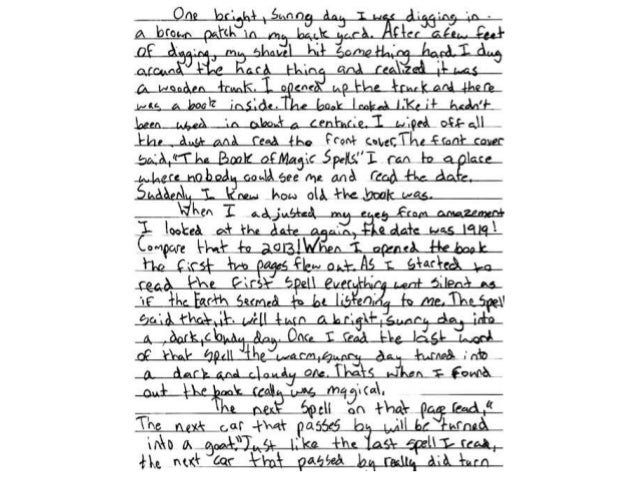 One bright, sunny day I was digging in
a brown patch in my back yard. After a few feet
of digging, my shovel hit something hard. I dug
around the hard thing and realized it was
a wooden trunk. I opened up the trunk and there
was a book inside. The book looked like it hadn't
been used in about a centurie. I wiped off all
the dust and read the front cover. The front cover
said, "The Book of Magic Spells." I ran to a place
where nobody could see me and read the date.
Suddenly I knew how old the book was.
When I adjusted my eyes from amazement
I looked at the date again, the date was 1919!
Compare that to 2013! When I opened the book
the first two pages flew out. As I started to
read the first spell everything went silent as
if the Earth seemed to be listening to me. The spell
said that, it will turn a bright, sunny day into
a dark, cloudy day. Once I read the last word
of that spell the warm, sunny day turned into
a dark and cloudy one. Thats when I found
out the book really was magical.
The next spell on that page read, "
The next car that passes by will be turned
into a goat." Just like the last spell I read,
the next car that passed by really did turn